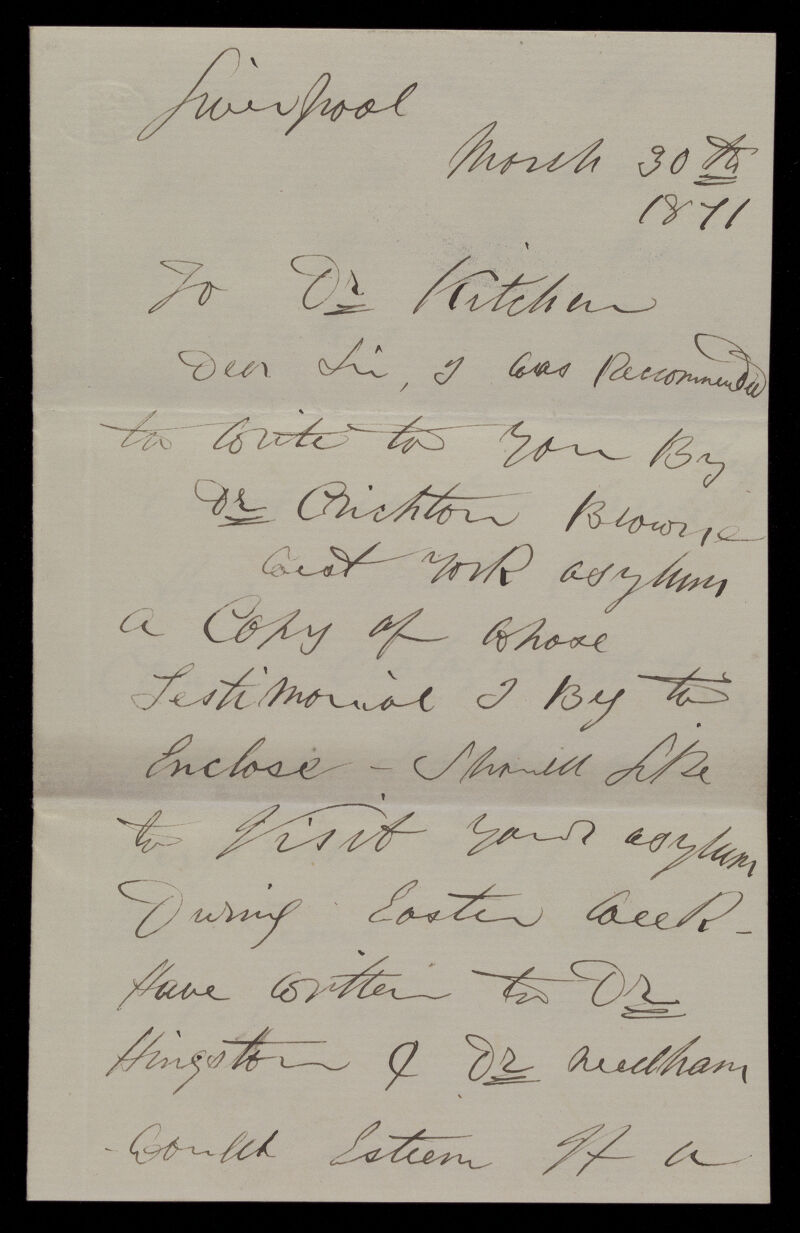 Liverpool
March 30th
1871
To Dr Kitchen
Dear Sir, I was Recommended
to write to you By
Dr Crichton Browne
West York asylum
a Copy of whose
Testimonial I Beg to
Enclose - Should Like
to Visit your asylum
During Easter Week -
Have written to Dr
Hingston & Dr Needham
- Would Esteem It a